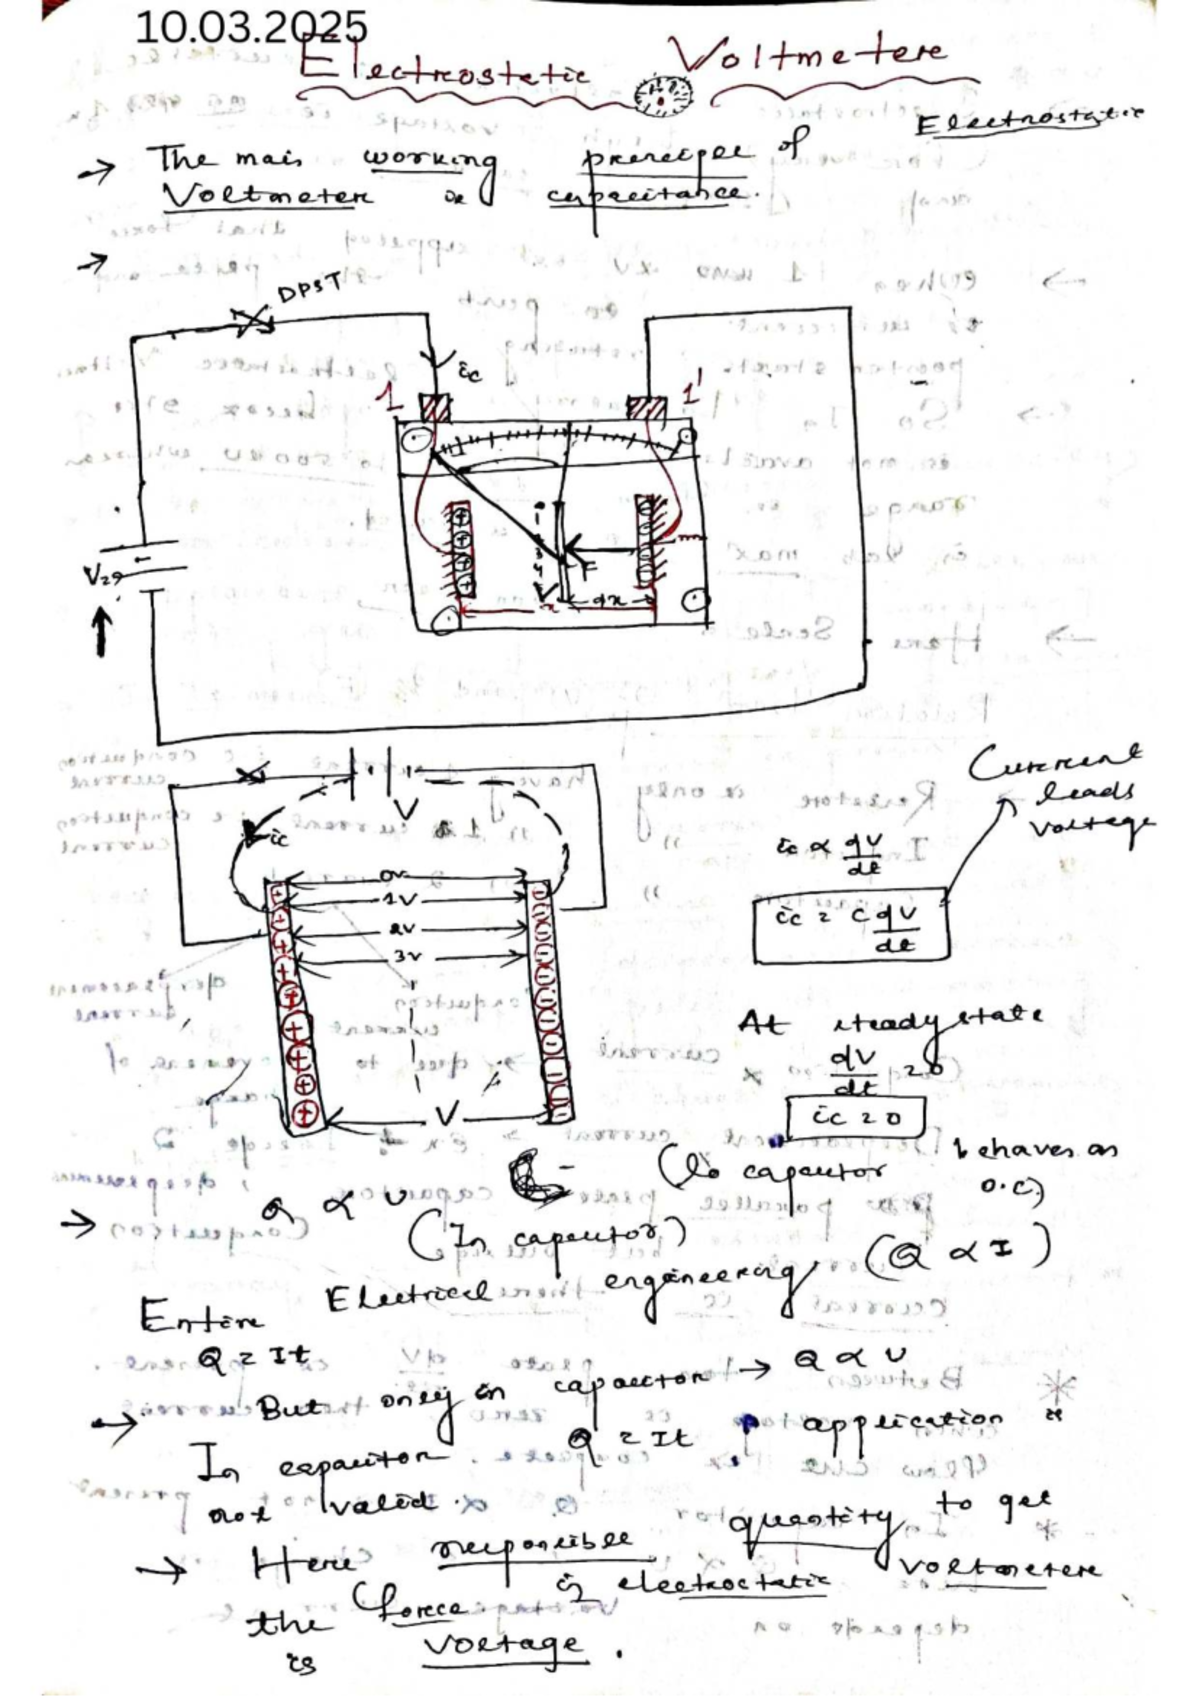 10.03.2025
Electrostatic Voltmetere
→ The main working principle of Electrostatic
Voltmeter is capacitance.
→
DPST
ic
1
1'
V
F
x
dx
V
ic
0v
1V
2V
3v
V
Current
leads
voltage
ic ∝ dV/dt
ic = C dV/dt
At steady state
dV/dt = 0
ic = 0
(So capacitor behaves as
o.c)
→ Q ∝ V
(In capacitor)
Entire Electrical engineering (Q ∝ I)
Q = It
→ But only in capacitor → Q ∝ V
In capacitor Q = It application is
not valid.
→ Here responsible quantity to get
the force in electrostatic voltmetere
is voltage.